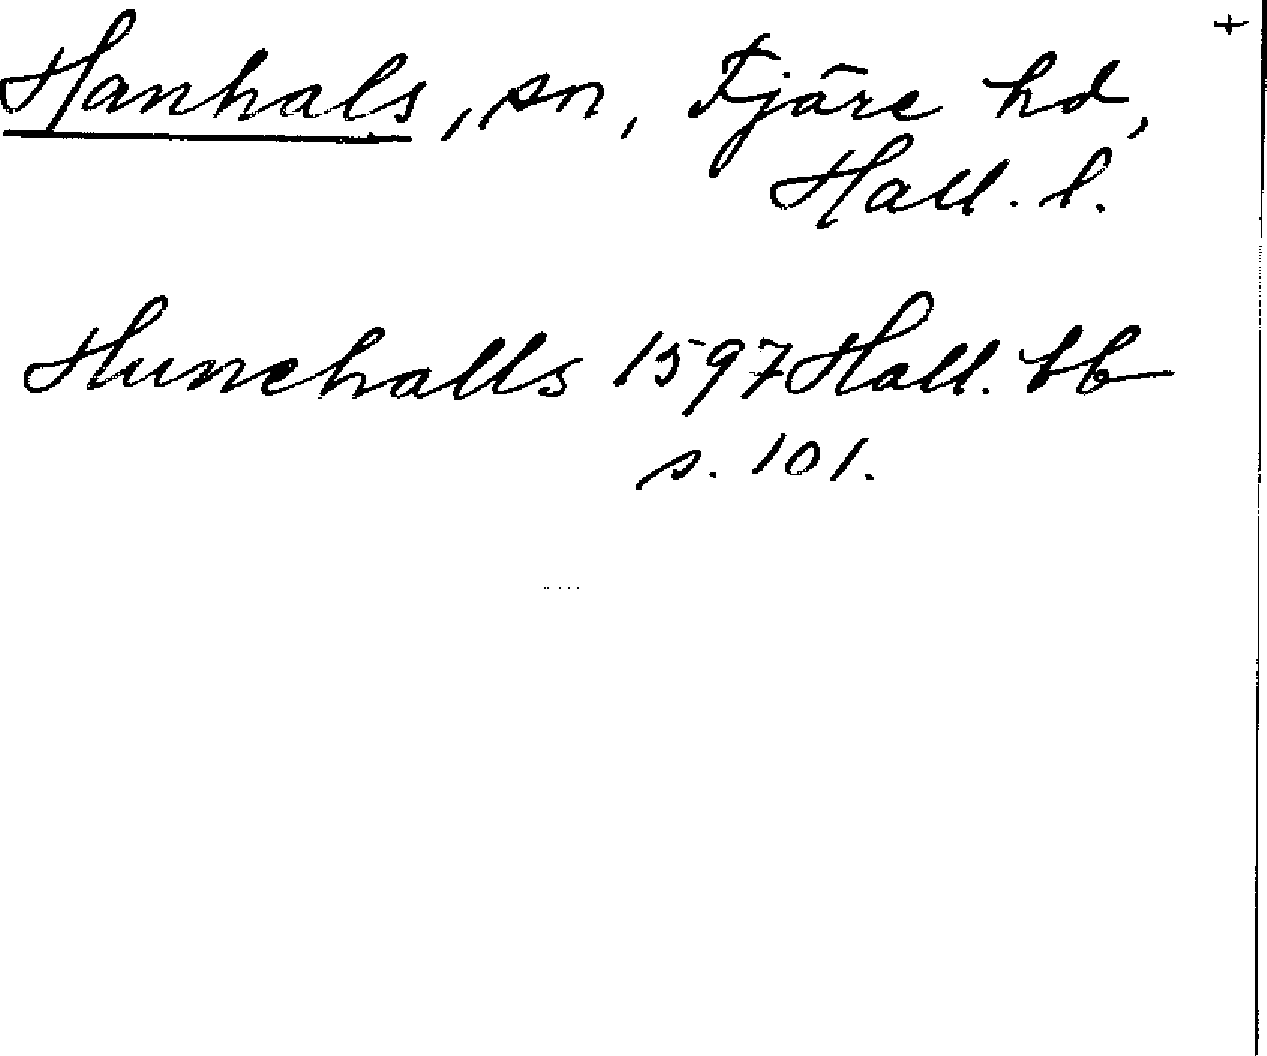 +
Hanhals, sn, Fjäre hd,
Hall. l.
Hunehalls 1597 Hall. bb
s. 101.